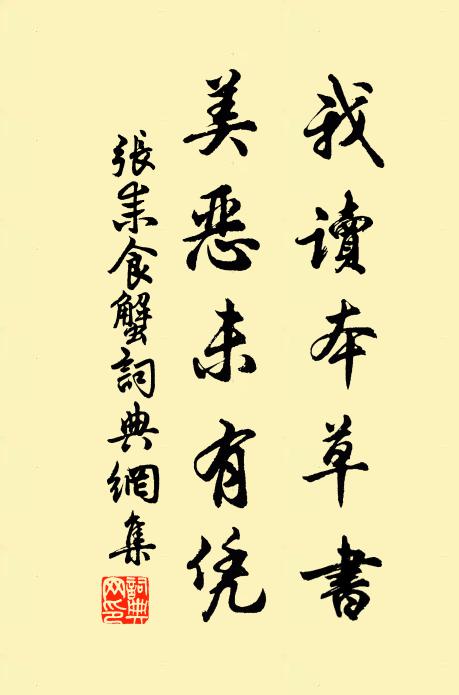 我讀本草書
美惡未有凭
張耒食蟹詞典網集
詞典網印